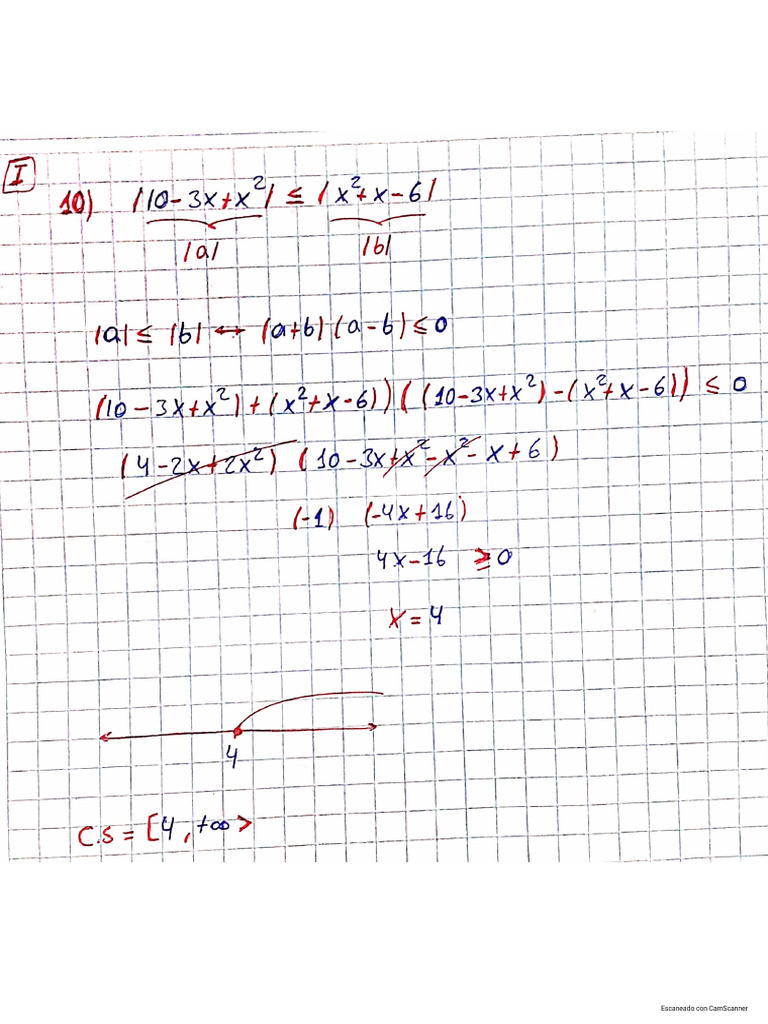 I
10) |10-3x+x²| ≤ |x²+x-6|
|a| |b|
|a| ≤ |b| ↔ (a+b)(a-b) ≤ 0
(10-3x+x²)+(x²+x-6))((10-3x+x²)-(x²+x-6)) ≤ 0
(4-2x+2x²) (10-3x+x²-x²-x+6)
(-1) (-4x+16)
4x-16 ≥ 0
x = 4
4
C.S = [4, +∞>
Escaneado con CamScanner